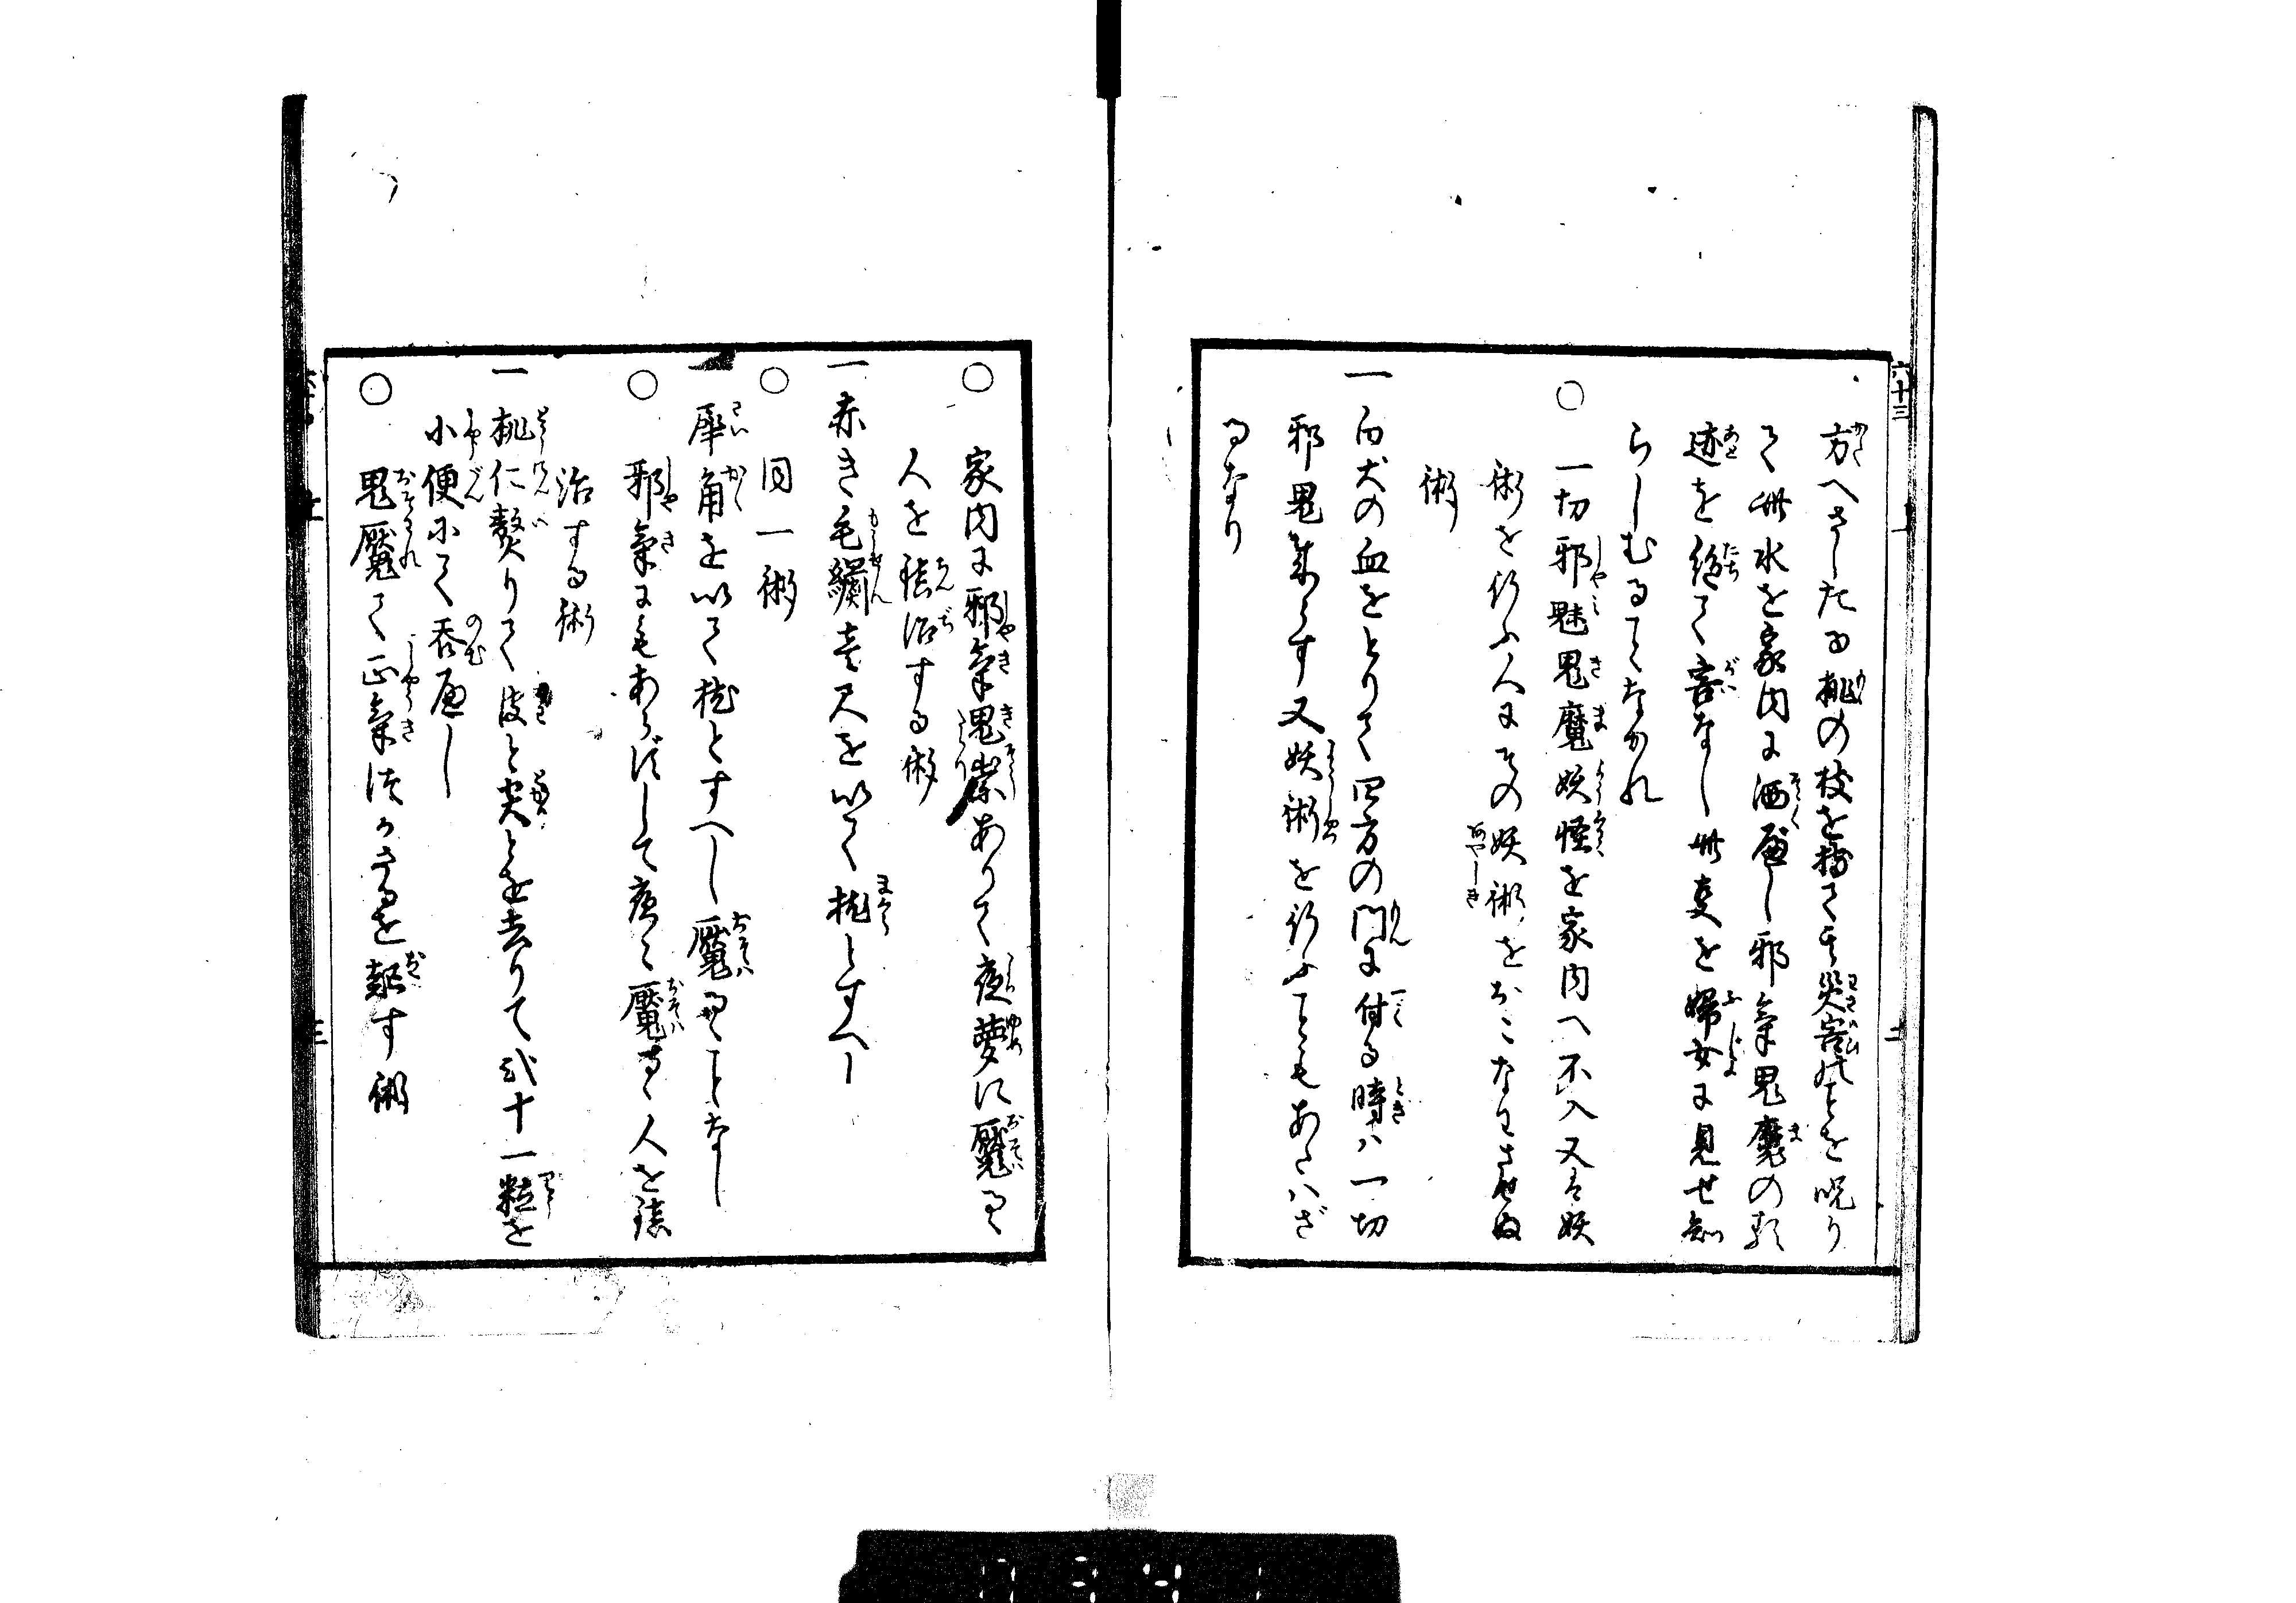 方へさしたる桃の枝を持て其災害のことを呪り
て此水を家内に洒べし邪氣鬼魔の類
迹を絶て害なし此事を婦女に見せ知
らしむることなかれ
○一切邪魅鬼魔妖怪を家内へ不入又は妖
術を行ふ人にその妖術をおこなわさせぬ
術
一白犬の血をとりて四方の門に付る時ハ一切
邪鬼来らす又妖術を行ふこともあたハざ
るなり
○家内に邪氣鬼祟ありて夜夢に魘るゝ
人を療治する術
一赤き毛氈壱尺を以て枕とすへし
○同一術
一犀角を以て枕とすへし魘るゝことなし
○邪氣にもあらずして夜々魘るゝ人を療
治する術
一桃仁熬りて皮と尖とを去りて弐十一粒を
小便にて呑べし
○鬼魘て正氣つかさるを起す術
六十三
二
三